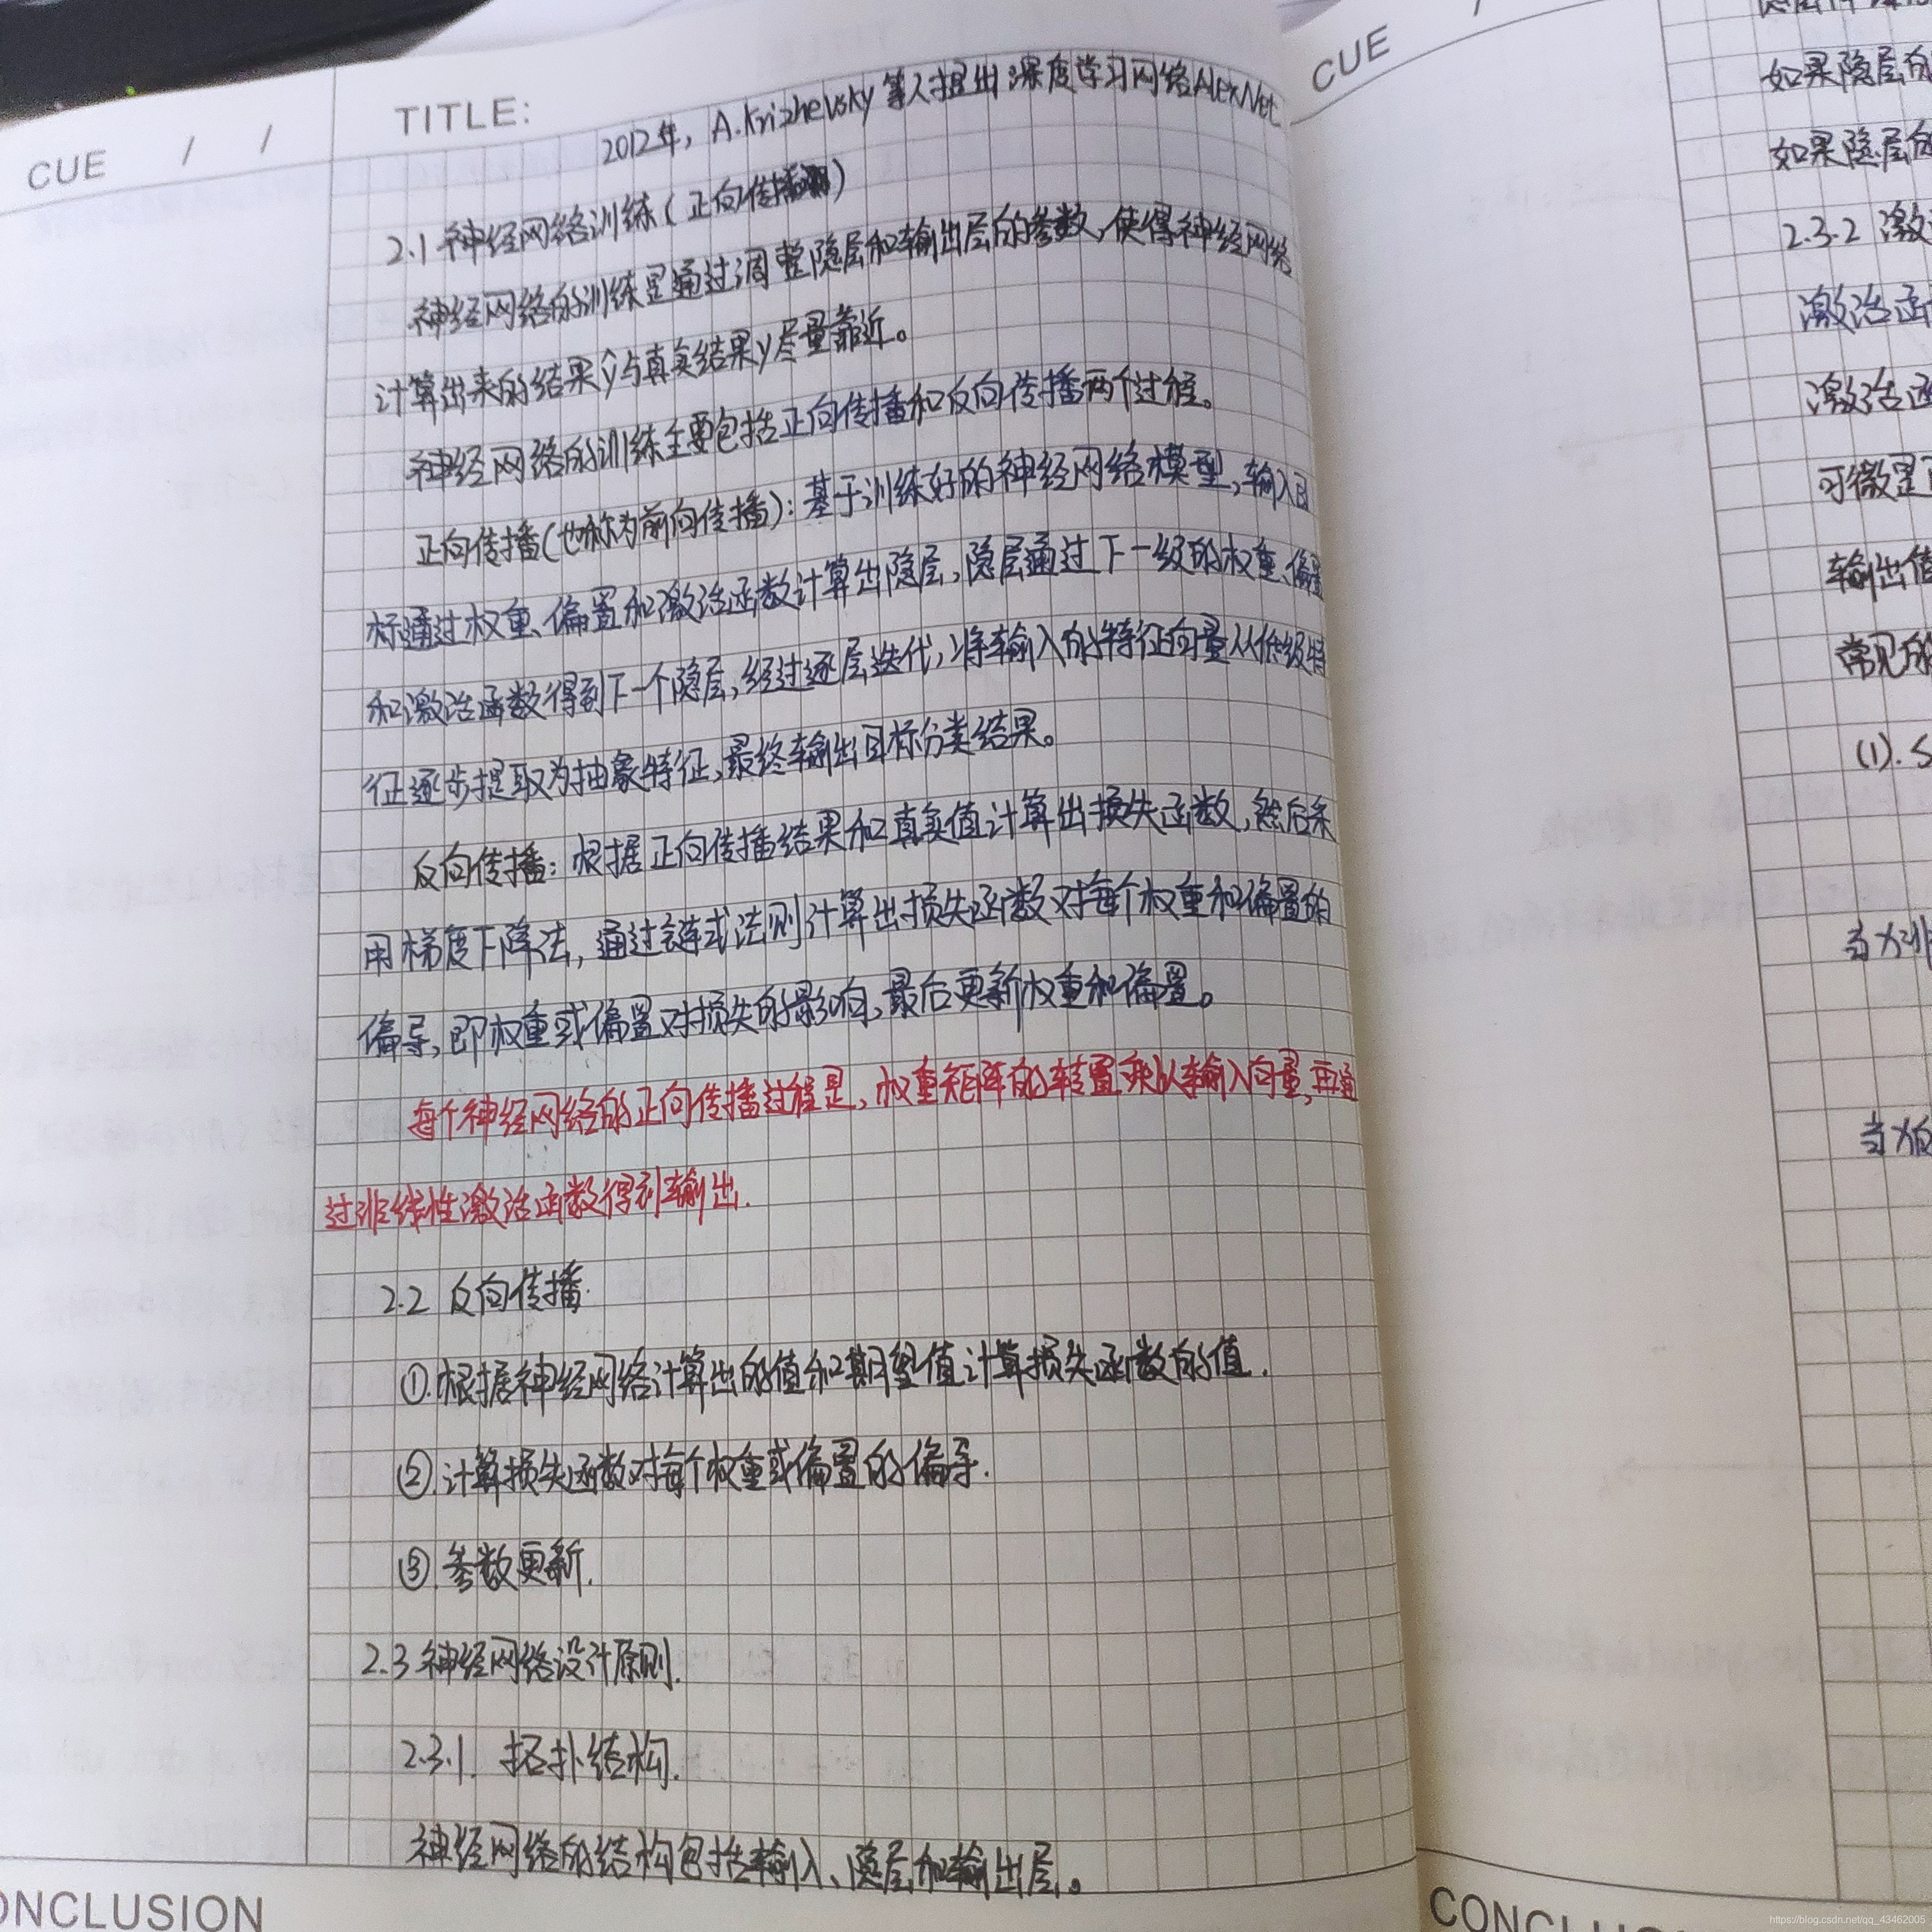 CUE / /
TITLE:
2012年, A.Krizhevsky等人提出深度学习网络AlexNet.
2.1 神经网络训练(正向传播)
神经网络的训练是通过调整隐层和输出层的参数,使得神经网络
计算出来的结果ŷ与真实结果y尽量靠近。
神经网络的训练主要包括正向传播和反向传播两个过程。
正向传播(也称为前向传播):基于训练好的神经网络模型,输入目
标通过权重、偏置和激活函数计算出隐层,隐层通过下一级的权重、偏置
和激活函数得到下一个隐层,经过逐层迭代,将输入的特征向量从低级特
征逐步提取为抽象特征,最终输出目标分类结果。
反向传播:根据正向传播结果和真实值计算出损失函数,然后采
用梯度下降法,通过链式法则计算出损失函数对每个权重和偏置的
偏导,即权重或偏置对损失的影响,最后更新权重和偏置。
每个神经网络的正向传播过程是,权重矩阵的转置乘以输入向量,再通
过非线性激活函数得到输出.
2.2 反向传播.
①.根据神经网络计算出的值和期望值计算损失函数的值.
②.计算损失函数对每个权重或偏置的偏导.
③.参数更新.
2.3 神经网络设计原则.
2.3.1. 拓扑结构.
神经网络的结构包括输入、隐层和输出层。
ONCLUSION
CUE /
如果隐层的
如果隐层的
2.3.2 激
激活函
激活函
可微是
输出值
常见的
(1). S
当x非
当x
CONCLU
https://blog.csdn.net/qq_43462005